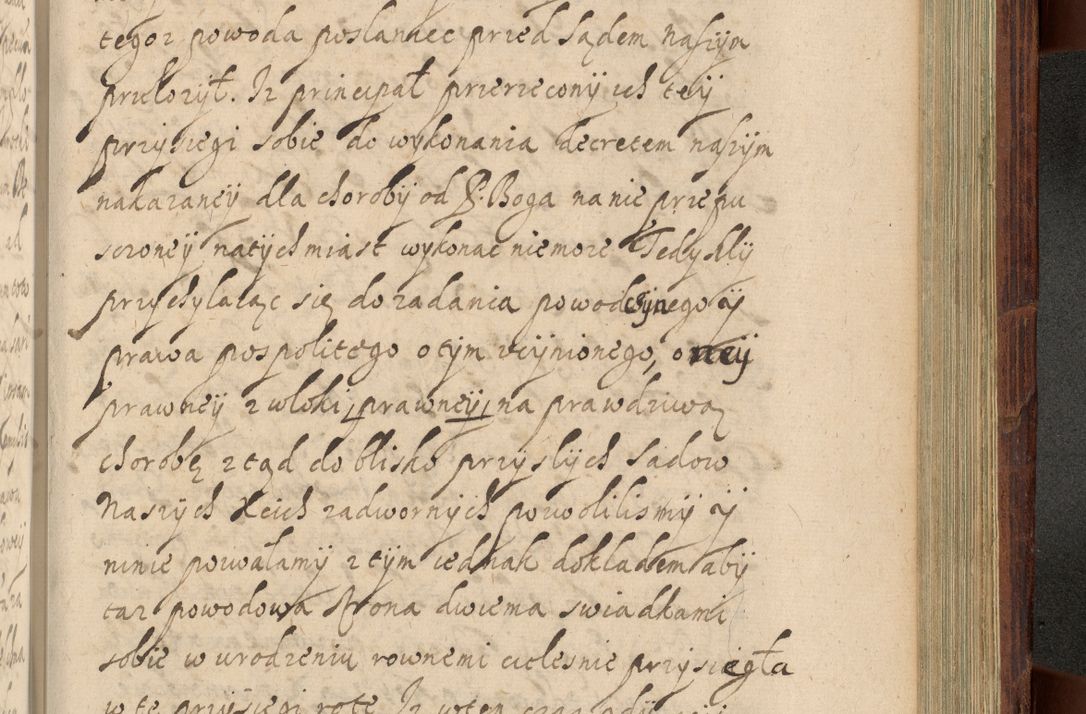 tegoz powoda poslaniec przed Sądem naszym
przełozył. Iz principał przerzeczonÿ ich teÿ
przysiegi sobie do wykonania decretem naszÿm
nakazaneÿ dla chorobÿ od P. Boga na nie przepu
sczoneÿ natÿchmiast wykonac niemoze Tedysmÿ
przychylaiąc się do ządania powodowego ÿ
prawa pospolitego o tÿm vczÿnionego, oneÿ
prawneÿ zwłoki, prawneÿ, na prawdziwą
chorobę ztąd do blisko przÿslÿch Sadow
Naszÿch Xcich zadwornÿch pozwolilismÿ ÿ
ninie pozwalamÿ z tÿm iednak dokładem abÿ
taz powodowa Strona dwiema swiadkami
sobie w urodzeniu rownemi cielesnie przysiegła
w te przysiegi rotę Iz wten czas gdÿ